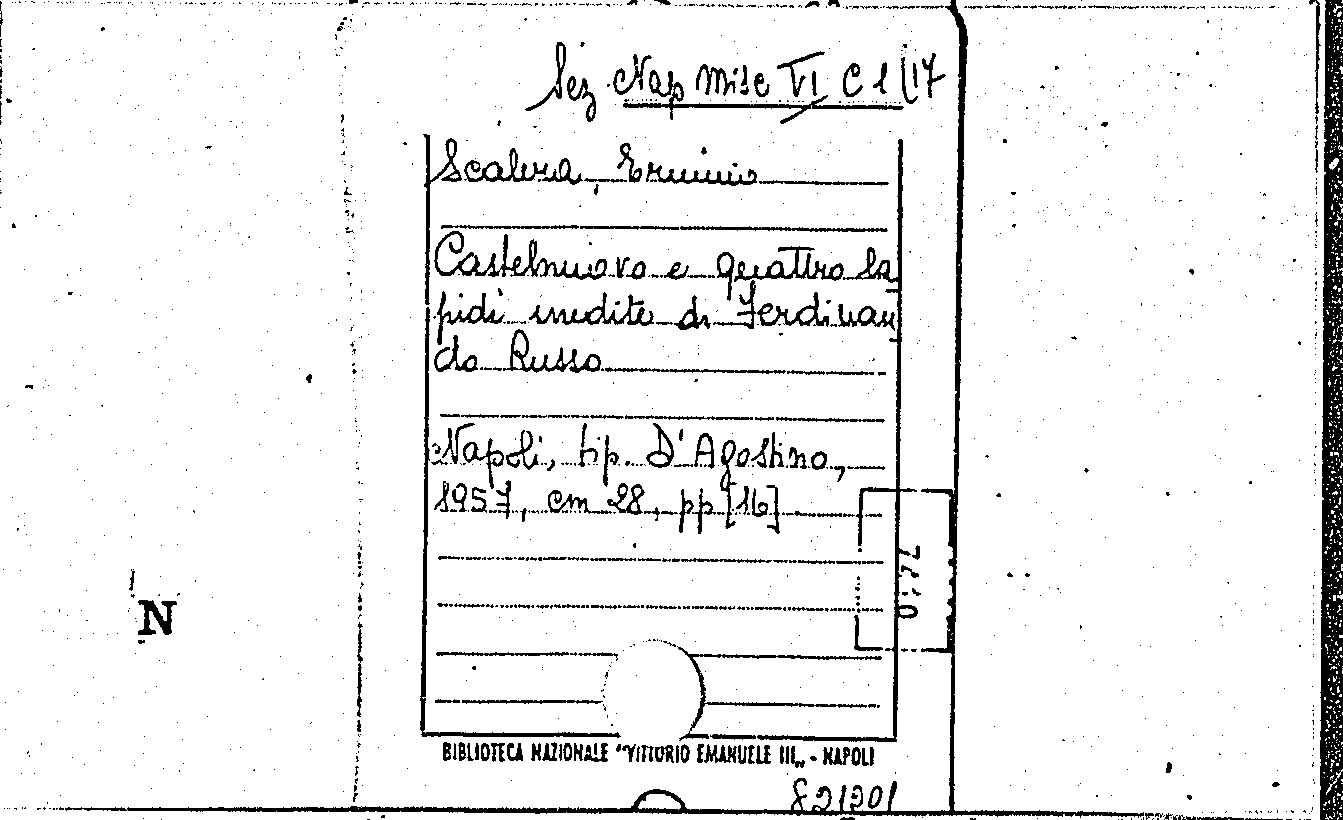 Sez Nap Misc VI C 1 (17
Scalera, Erminio
Castelnuovo e quattro la
pidi inedite di Ferdinan
do Russo
Napoli, tip. D'Agostino,
1957, cm 28, pp [16]
N
BIBLIOTECA NAZIONALE "VITTORIO EMANUELE III„ - NAPOLI